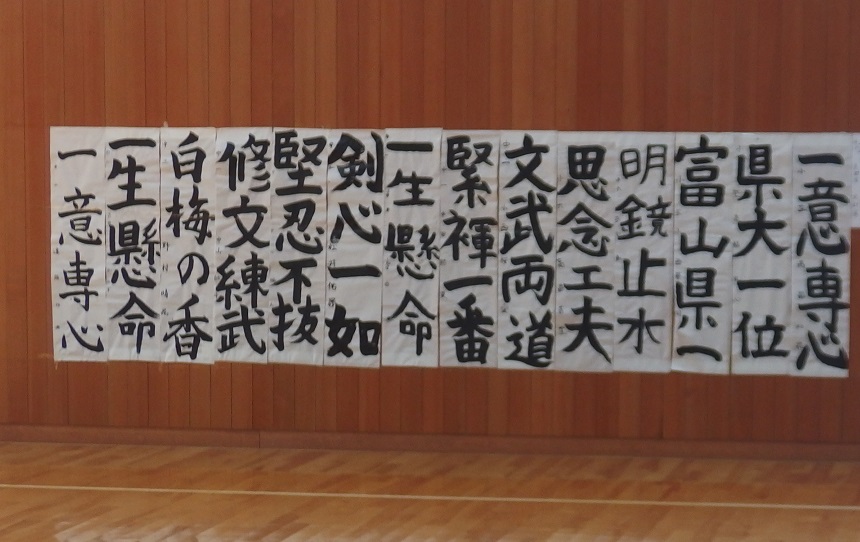 一意専心
県大一位
富山県一
明鏡止水
思念工夫
文武両道
緊褌一番
一生懸命
剣心一如
堅忍不抜
修文練武
白梅の香
一生懸命
一意専心